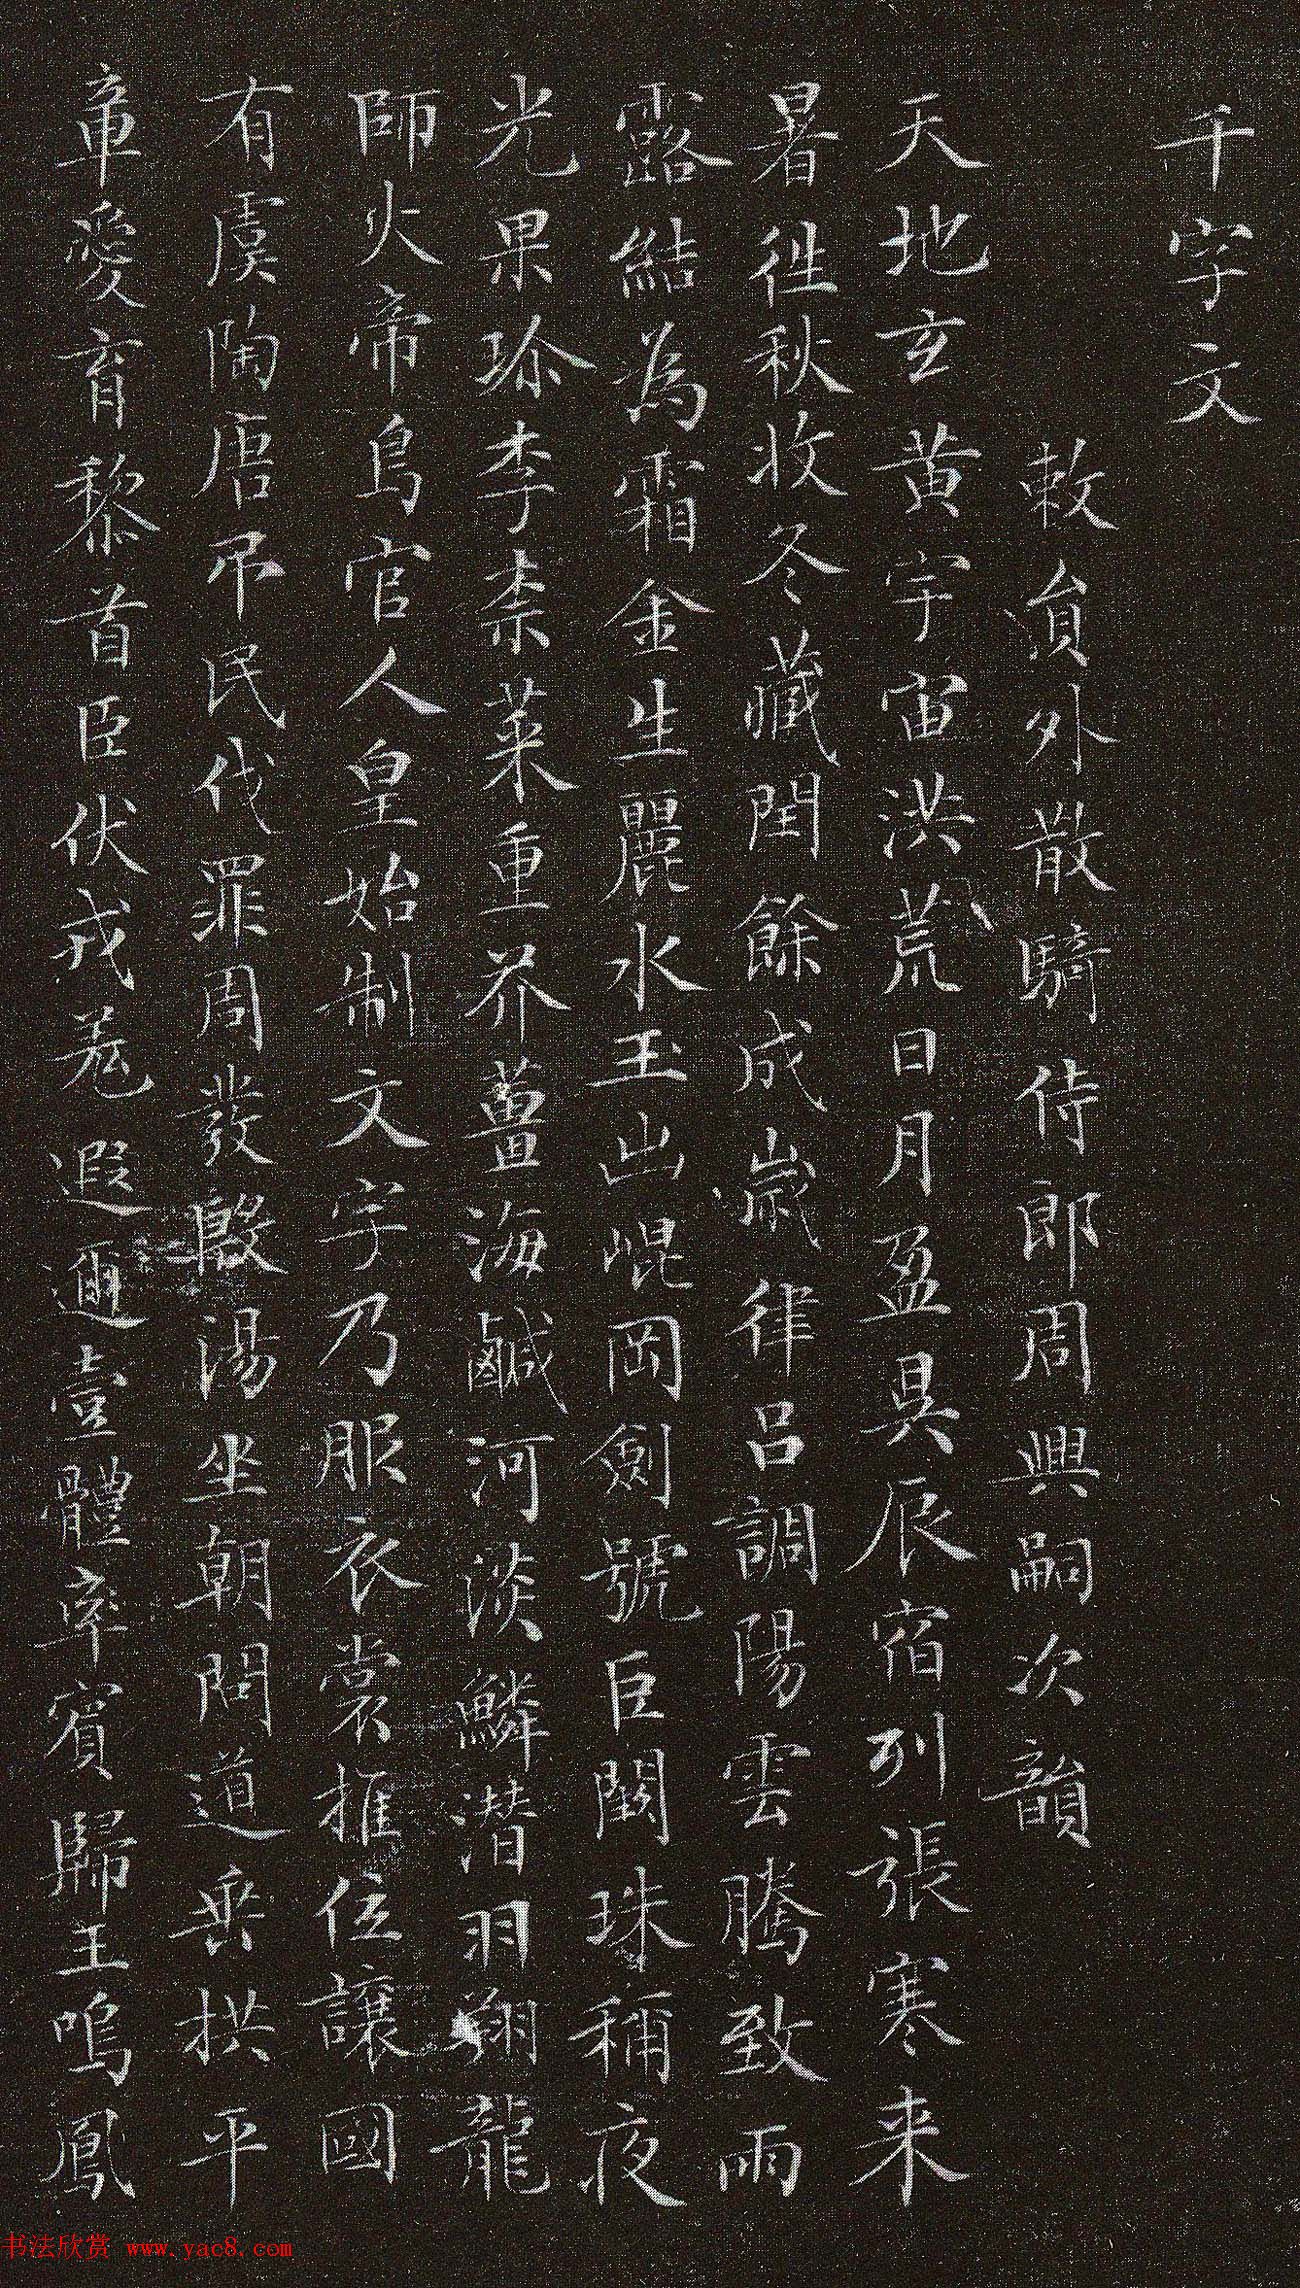 千字文
敕員外散騎侍郎周興嗣次韻
天地玄黄宇宙洪荒日月盈昃辰宿列張寒来
暑往秋收冬藏閏餘成歲律吕調陽雲騰致雨
露結為霜金生麗水玉出崐岡劍號巨闕珠稱夜
光果珎李柰菜重芥薑海鹹河淡鱗潛羽翔龍
師火帝鳥官人皇始制文字乃服衣裳推位讓國
有虞陶唐吊民伐罪周發殷湯坐朝問道垂拱平
章愛育黎首臣伏戎羌遐邇壹體率賓歸王鳴鳳
书法欣赏 www.yac8.com